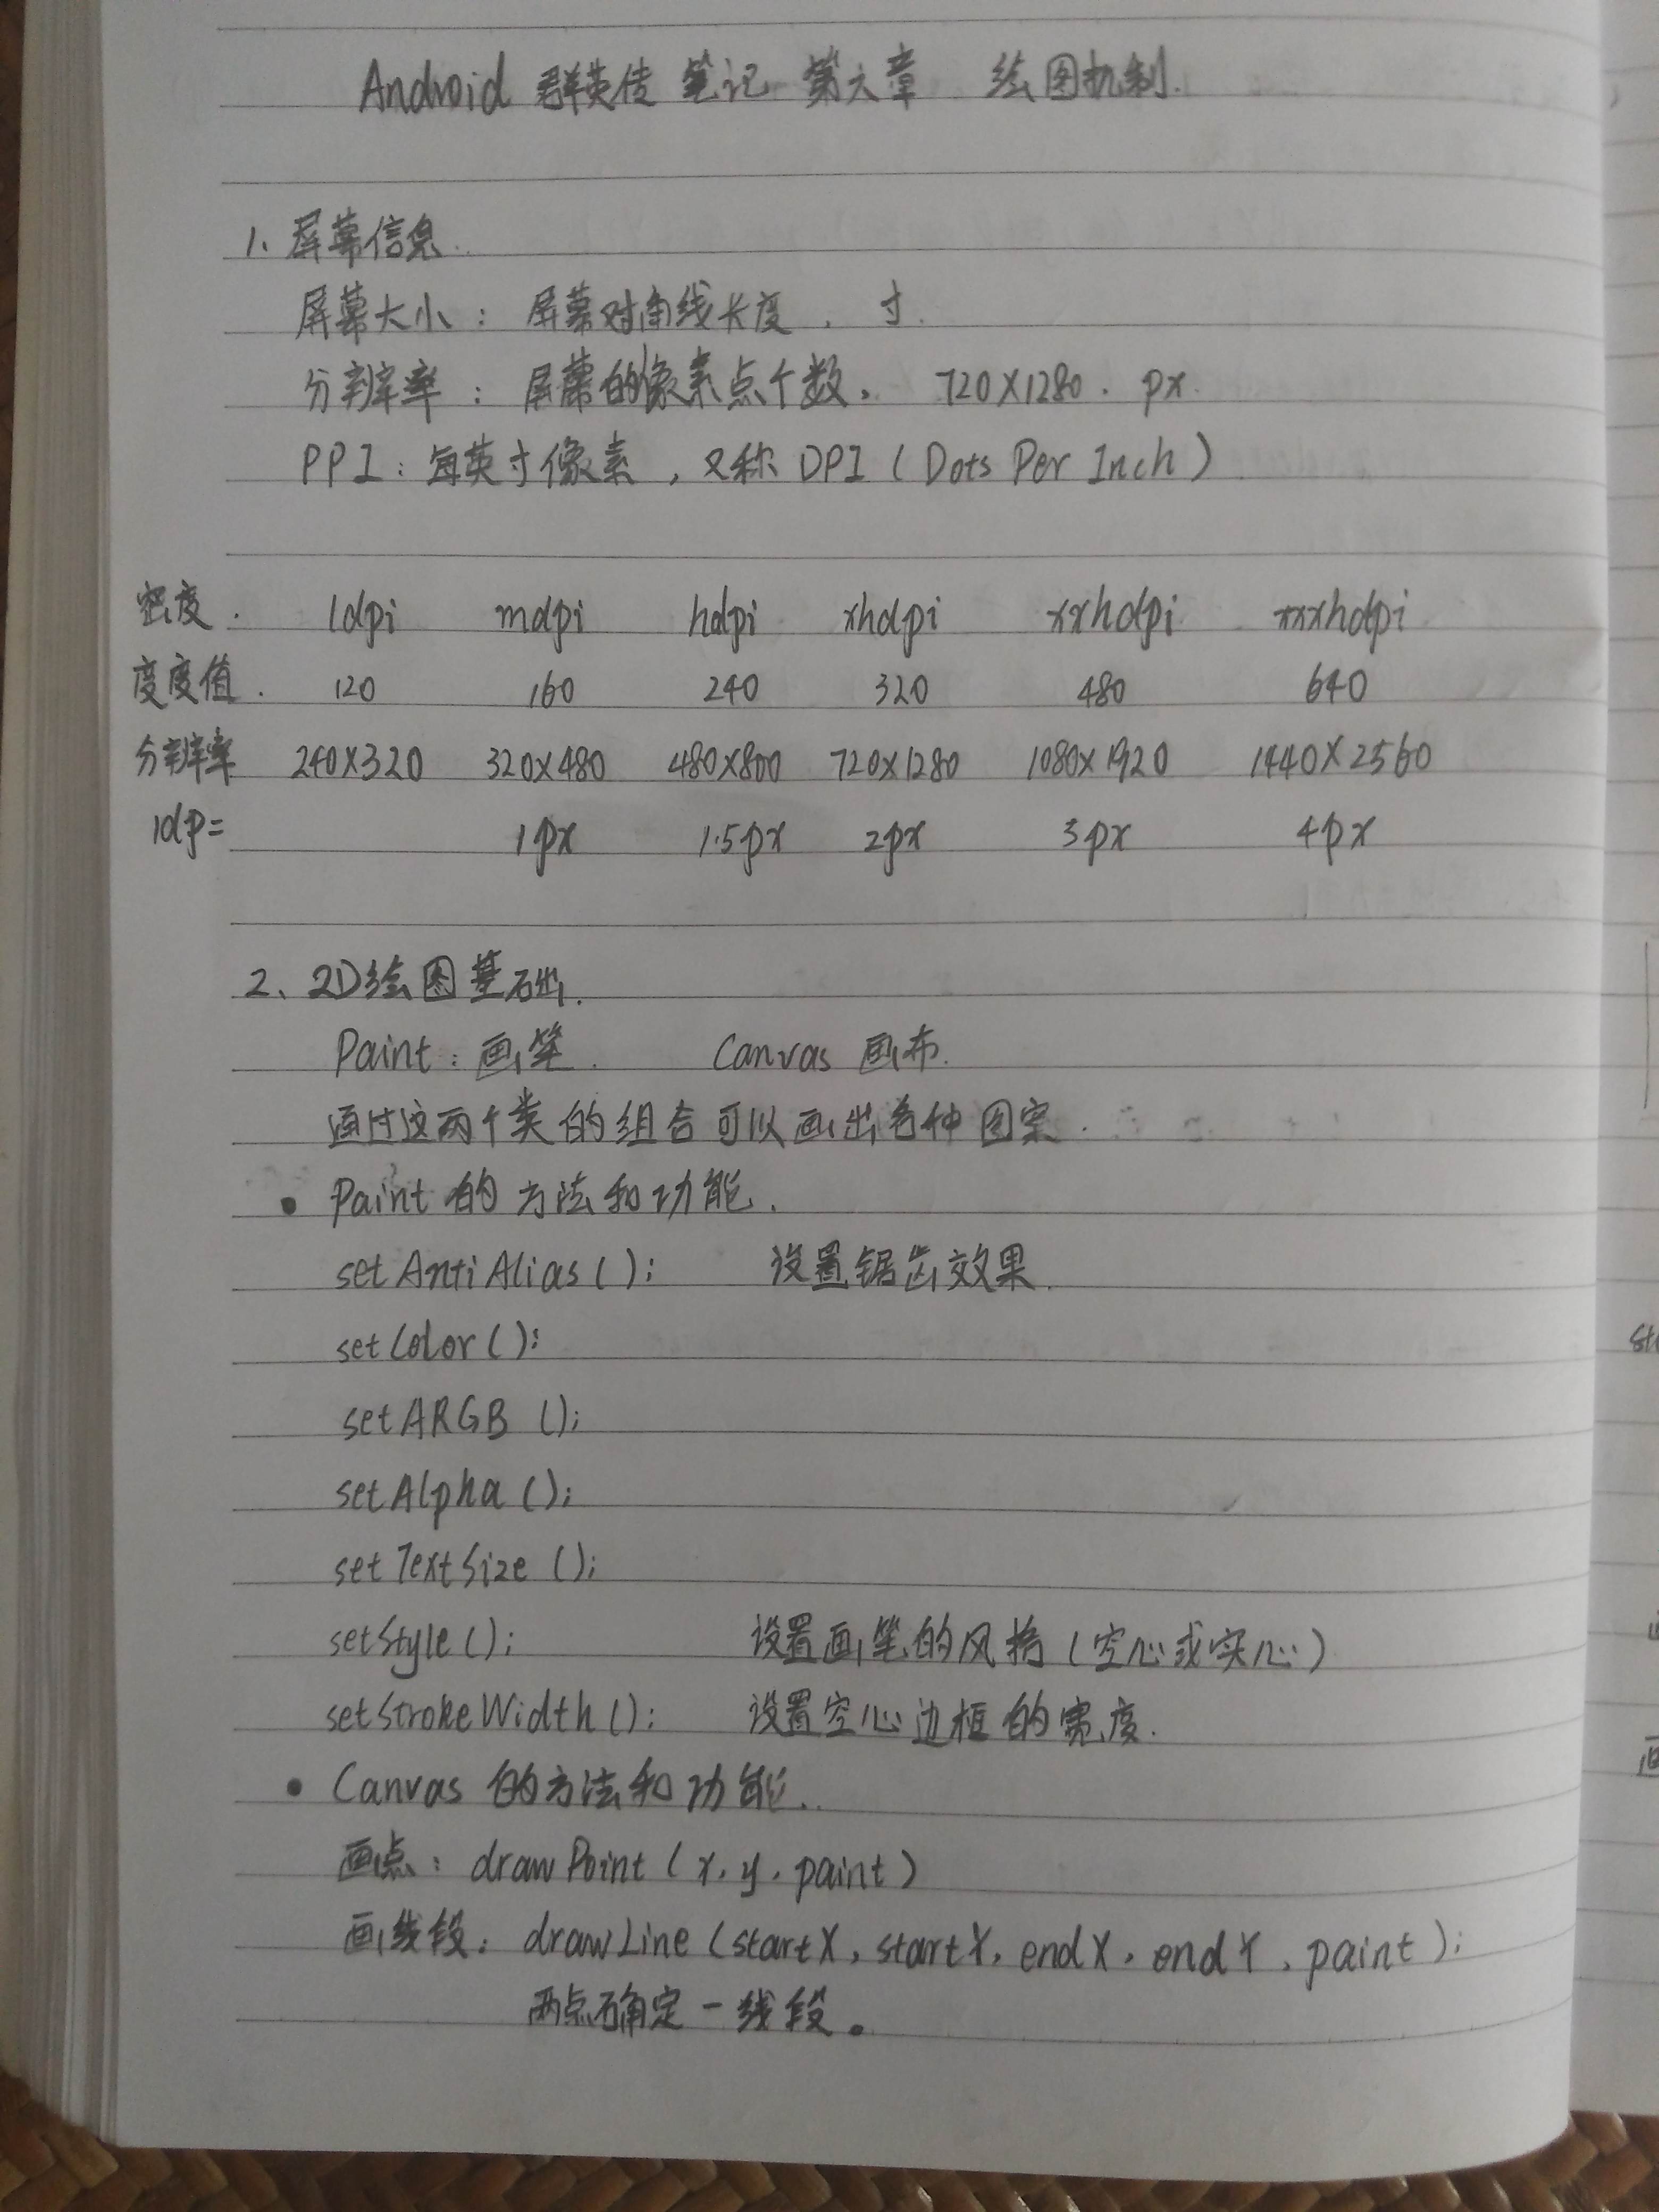 Android 群英传 笔记 第六章 绘图机制.
1、屏幕信息.
屏幕大小: 屏幕对角线长度, 寸.
分辨率: 屏幕的像素点个数, 720X1280. px.
PPI: 每英寸像素, 又称 DPI (Dots Per Inch)
密度. ldpi mdpi hdpi xhdpi xxhdpi xxxhdpi
度度值. 120 160 240 320 480 640
分辨率 240X320 320X480 480X800 720X1280 1080X1920 1440X2560
1dp= 1px 1.5px 2px 3px 4px
2、2D绘图基础.
Paint: 画笔. Canvas 画布.
通过这两个类的组合可以画出各种图案.
• Paint 的方法和功能.
setAntiAlias(); 设置锯齿效果.
setColor();
setARGB();
setAlpha();
setTextSize();
setStyle(); 设置画笔的风格(空心或实心)
setStrokeWidth(); 设置空心边框的宽度.
• Canvas 的方法和功能.
画点: drawPoint(x, y, paint)
画线段: drawLine(startX, startY, endX, endY, paint);
两点确定一线段。